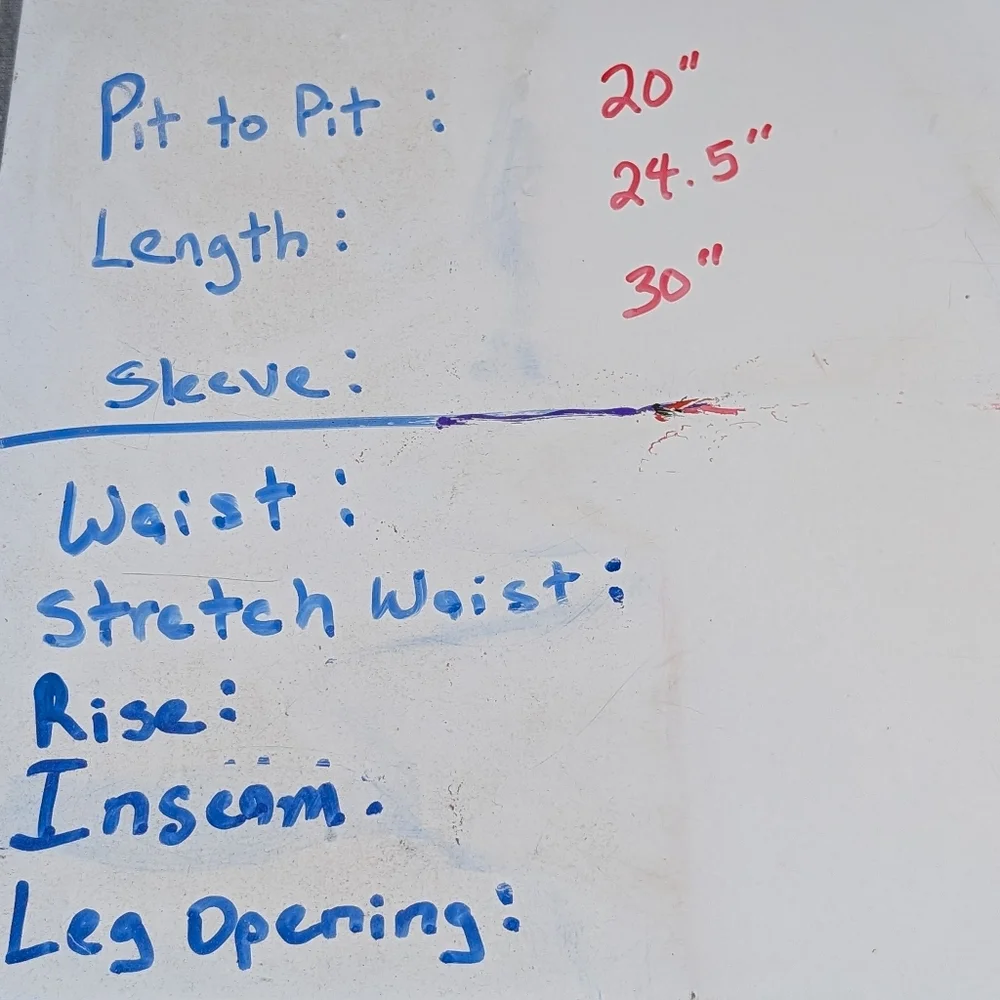 Pit to Pit : 20"
Length : 24.5"
Sleeve : 30"
Waist :
Stretch Waist :
Rise :
Inseam .
Leg Opening :